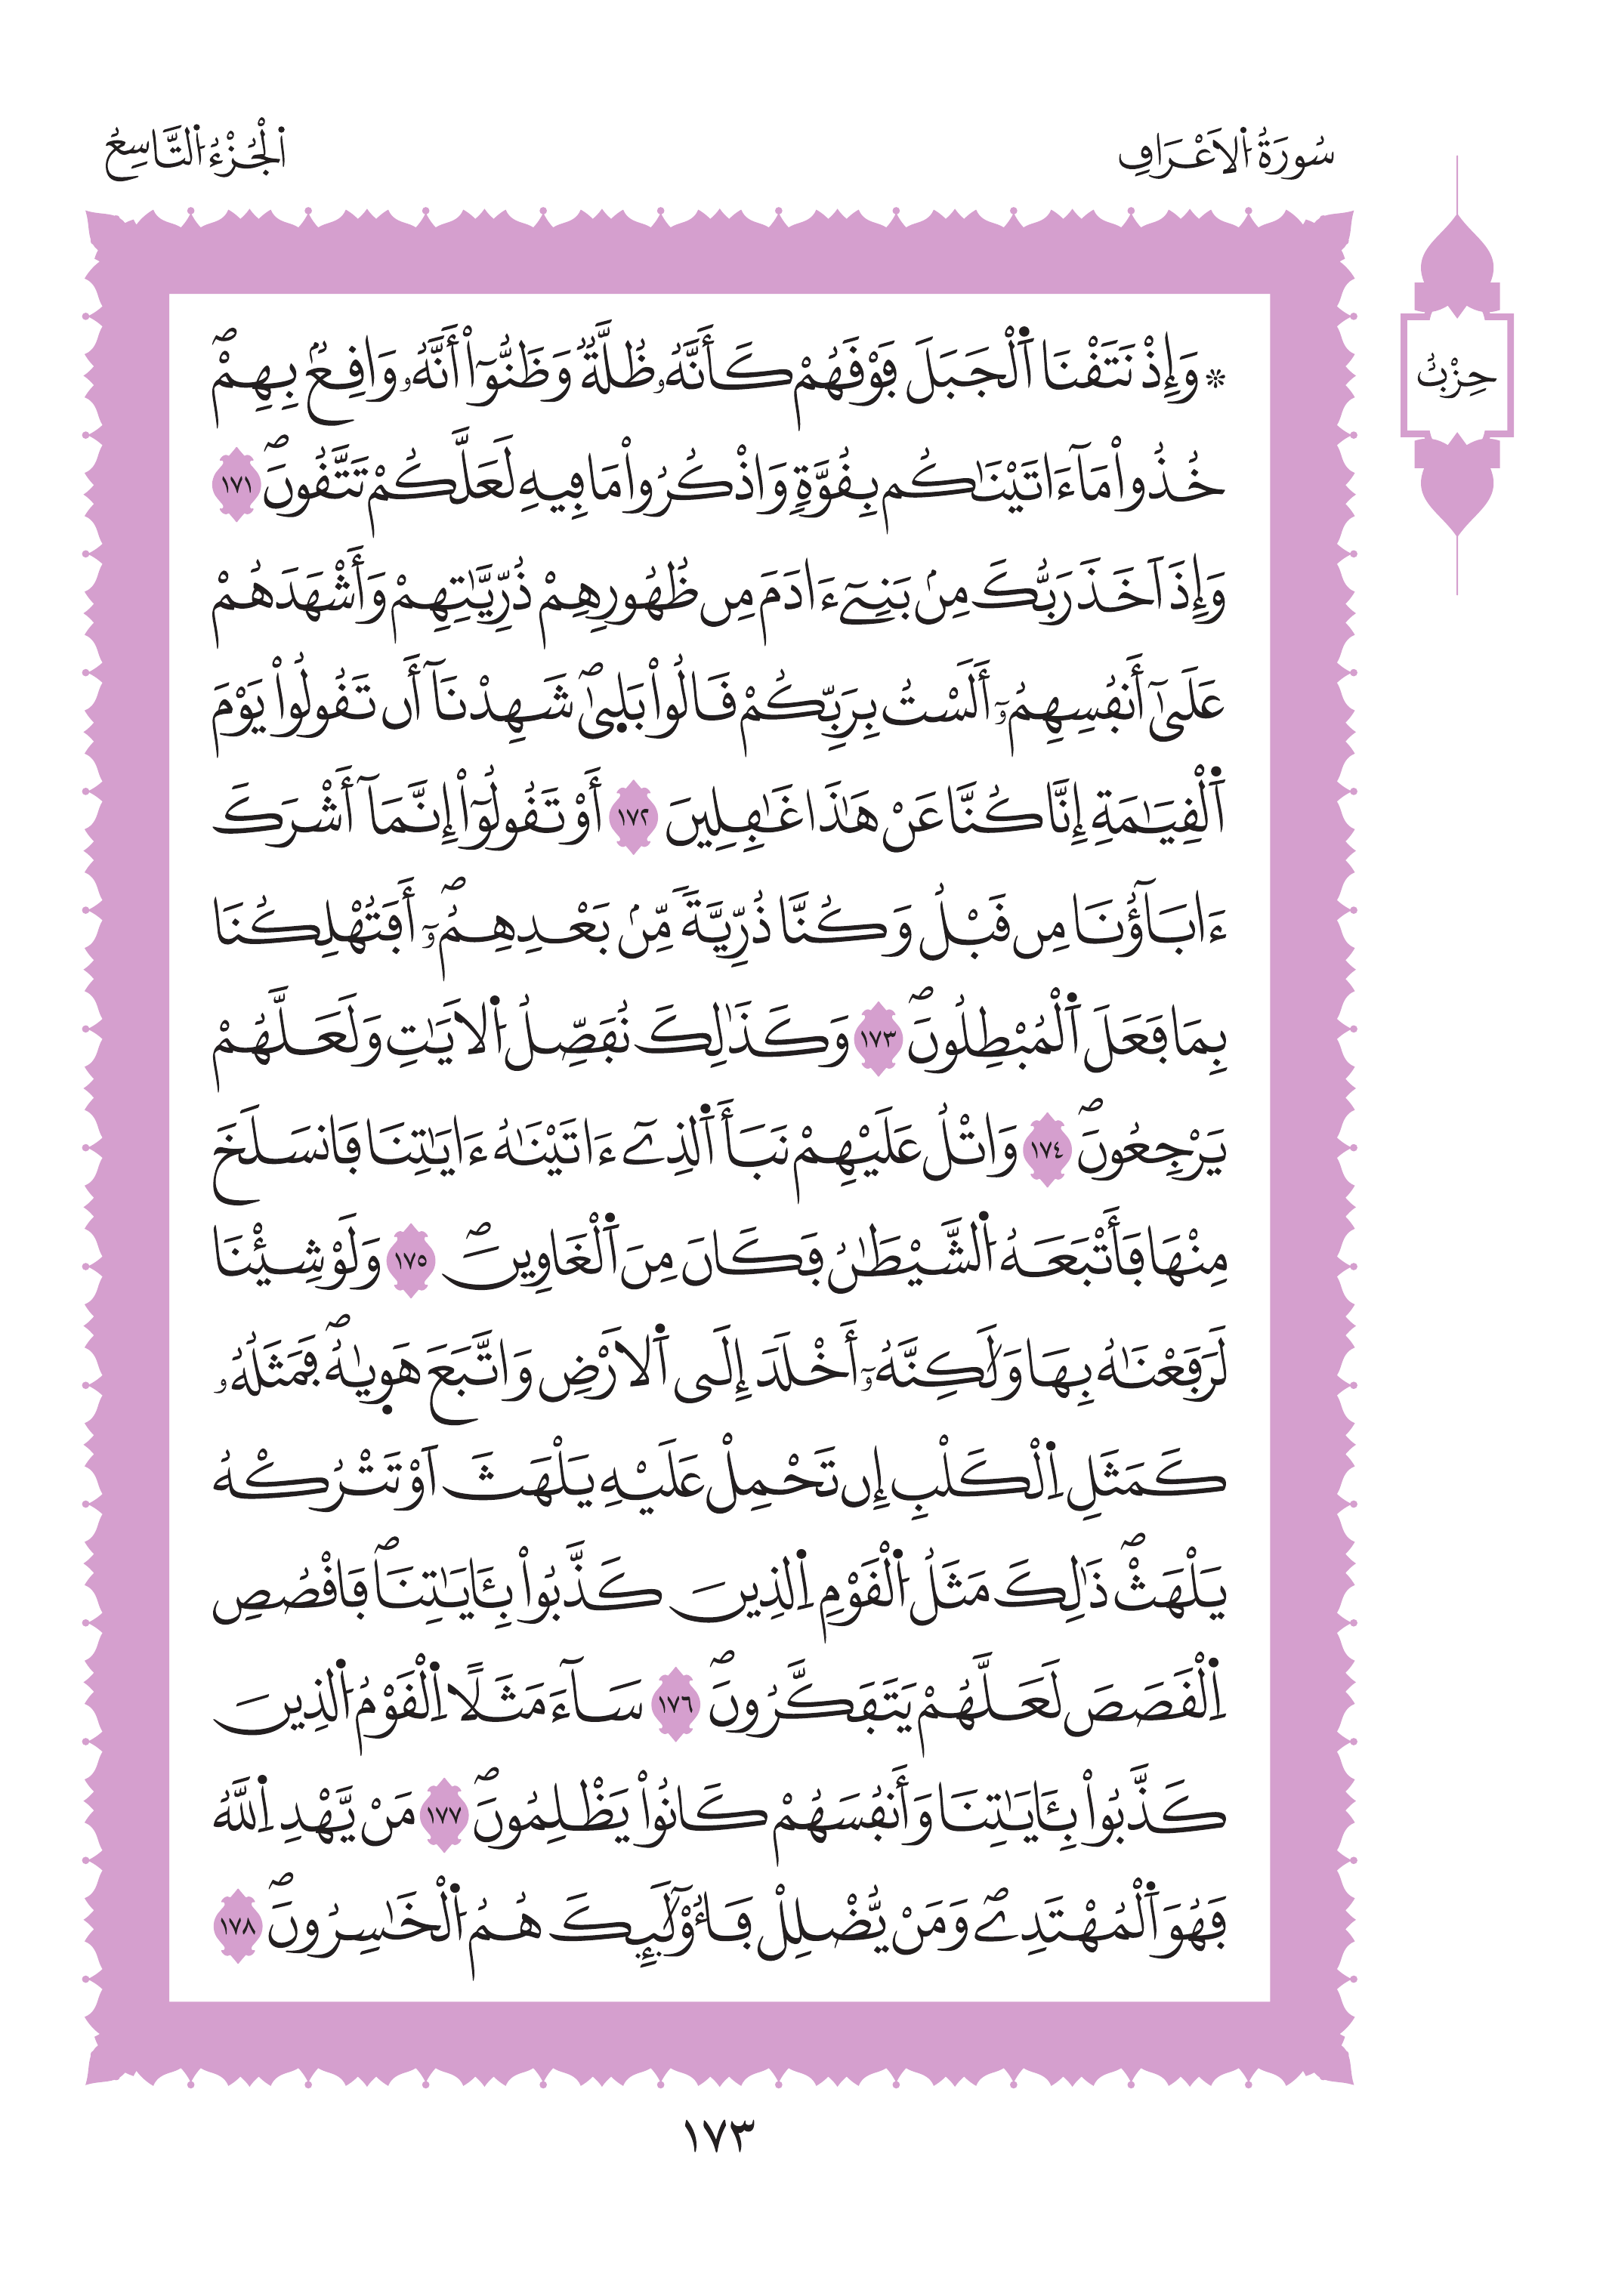 سُورَةُ اُ۬لَاعْرَافِ
اُ۬لْجُزْءُ اُ۬لتَّاسِعُ
حِزْبٌ
۞ وَإِذْ نَتَقْنَا اَ۬لْجَبَلَ فَوْقَهُمْ كَأَنَّهُۥ ظُلَّةٞ وَظَنُّوٓاْ أَنَّهُۥ وَاقِعُۢ بِهِمْۖ
خُذُواْ مَآ ءَاتَيْنَٰكُم بِقُوَّةٖ وَاذْكُرُواْ مَا فِيهِ لَعَلَّكُمْ تَتَّقُونَۖ ١٧١
وَإِذَ اَخَذَ رَبُّكَ مِنۢ بَنِےٓ ءَادَمَ مِن ظُهُورِهِمْ ذُرِّيَّٰتِهِمْ وَأَشْهَدَهُمْ
عَلَىٰٓ أَنفُسِهِمُۥٓ أَلَسْتُ بِرَبِّكُمْ قَالُواْ بَل۪ىٰۖ شَهِدْنَآ أَن تَقُولُواْ يَوْمَ
اَ۬لْقِيَٰمَةِ إِنَّا كُنَّا عَنْ هَٰذَا غَٰفِلِينَ ١٧٢ أَوْ تَقُولُوٓاْ إِنَّمَآ أَشْرَكَ
ءَابَآؤُنَا مِن قَبْلُ وَكُنَّا ذُرِّيَّةٗ مِّنۢ بَعْدِهِمُۥٓۖ أَفَتُهْلِكُنَا
بِمَا فَعَلَ اَ۬لْمُبْطِلُونَۖ ١٧٣ وَكَذَٰلِكَ نُفَصِّلُ اُ۬لَايَٰتِ وَلَعَلَّهُمْ
يَرْجِعُونَۖ ١٧٤ وَاتْلُ عَلَيْهِمْ نَبَأَ اَ۬لذِےٓ ءَاتَيْنَٰهُ ءَايَٰتِنَا فَانسَلَخَ
مِنْهَا فَأَتْبَعَهُ اُ۬لشَّيْطَٰنُ فَكَانَ مِنَ اَ۬لْغَاوِينَۖ ١٧٥ وَلَوْ شِئْنَا
لَرَفَعْنَٰهُ بِهَا وَلَٰكِنَّهُۥٓ أَخْلَدَ إِلَى اَ۬لَارْضِ وَاتَّبَعَ هَو۪يٰهُۖ فَمَثَلُهُۥ
كَمَثَلِ اِ۬لْكَلْبِ إِن تَحْمِلْ عَلَيْهِ يَلْهَثَ اَوْ تَتْرُكْهُ
يَلْهَثْۖ ذَٰلِكَ مَثَلُ اُ۬لْقَوْمِ اِ۬لذِينَ كَذَّبُواْ بِـَٔايَٰتِنَاۖ فَاقْصُصِ
اِ۬لْقَصَصَ لَعَلَّهُمْ يَتَفَكَّرُونَۖ ١٧٦ سَآءَ مَثَلًا اِ۬لْقَوْمُ اُ۬لذِينَ
كَذَّبُواْ بِـَٔايَٰتِنَا وَأَنفُسَهُمْ كَانُواْ يَظْلِمُونَۖ ١٧٧ مَنْ يَّهْدِ اِ۬للَّهُ
فَهُوَ اَ۬لْمُهْتَدِےۖ وَمَنْ يُّضْلِلْ فَأُوْلَٰٓئِكَ هُمُ اُ۬لْخَٰسِرُونَۖ ١٧٨
١٧٣